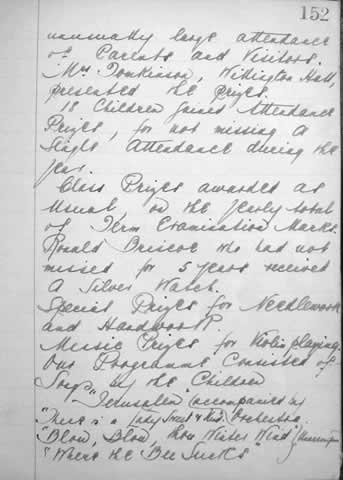 152
unusually large attendance
of Parents and Visitors.
Mrs Tomkinson, Willington Hall,
presented the prizes.
18 Children gained Attendance
Prizes, for not missing a
single Attendance during the
year.
Class Prizes awarded as
usual, on the yearly total
of Term Examination Marks.
Ronald Briscoe who had not
missed for 5 years received
a Silver Watch.
Special Prizes for Needlework
and Handwork.
Music Prizes for Violin playing.
Our Programme Consisted of
Songs by the Children
"Jerusalem" accompanied by
"There is a Lady Sweet & Kind" Orchestra
"Blow, Blow, thou Winter Wind"
"Where the Bee Sucks"